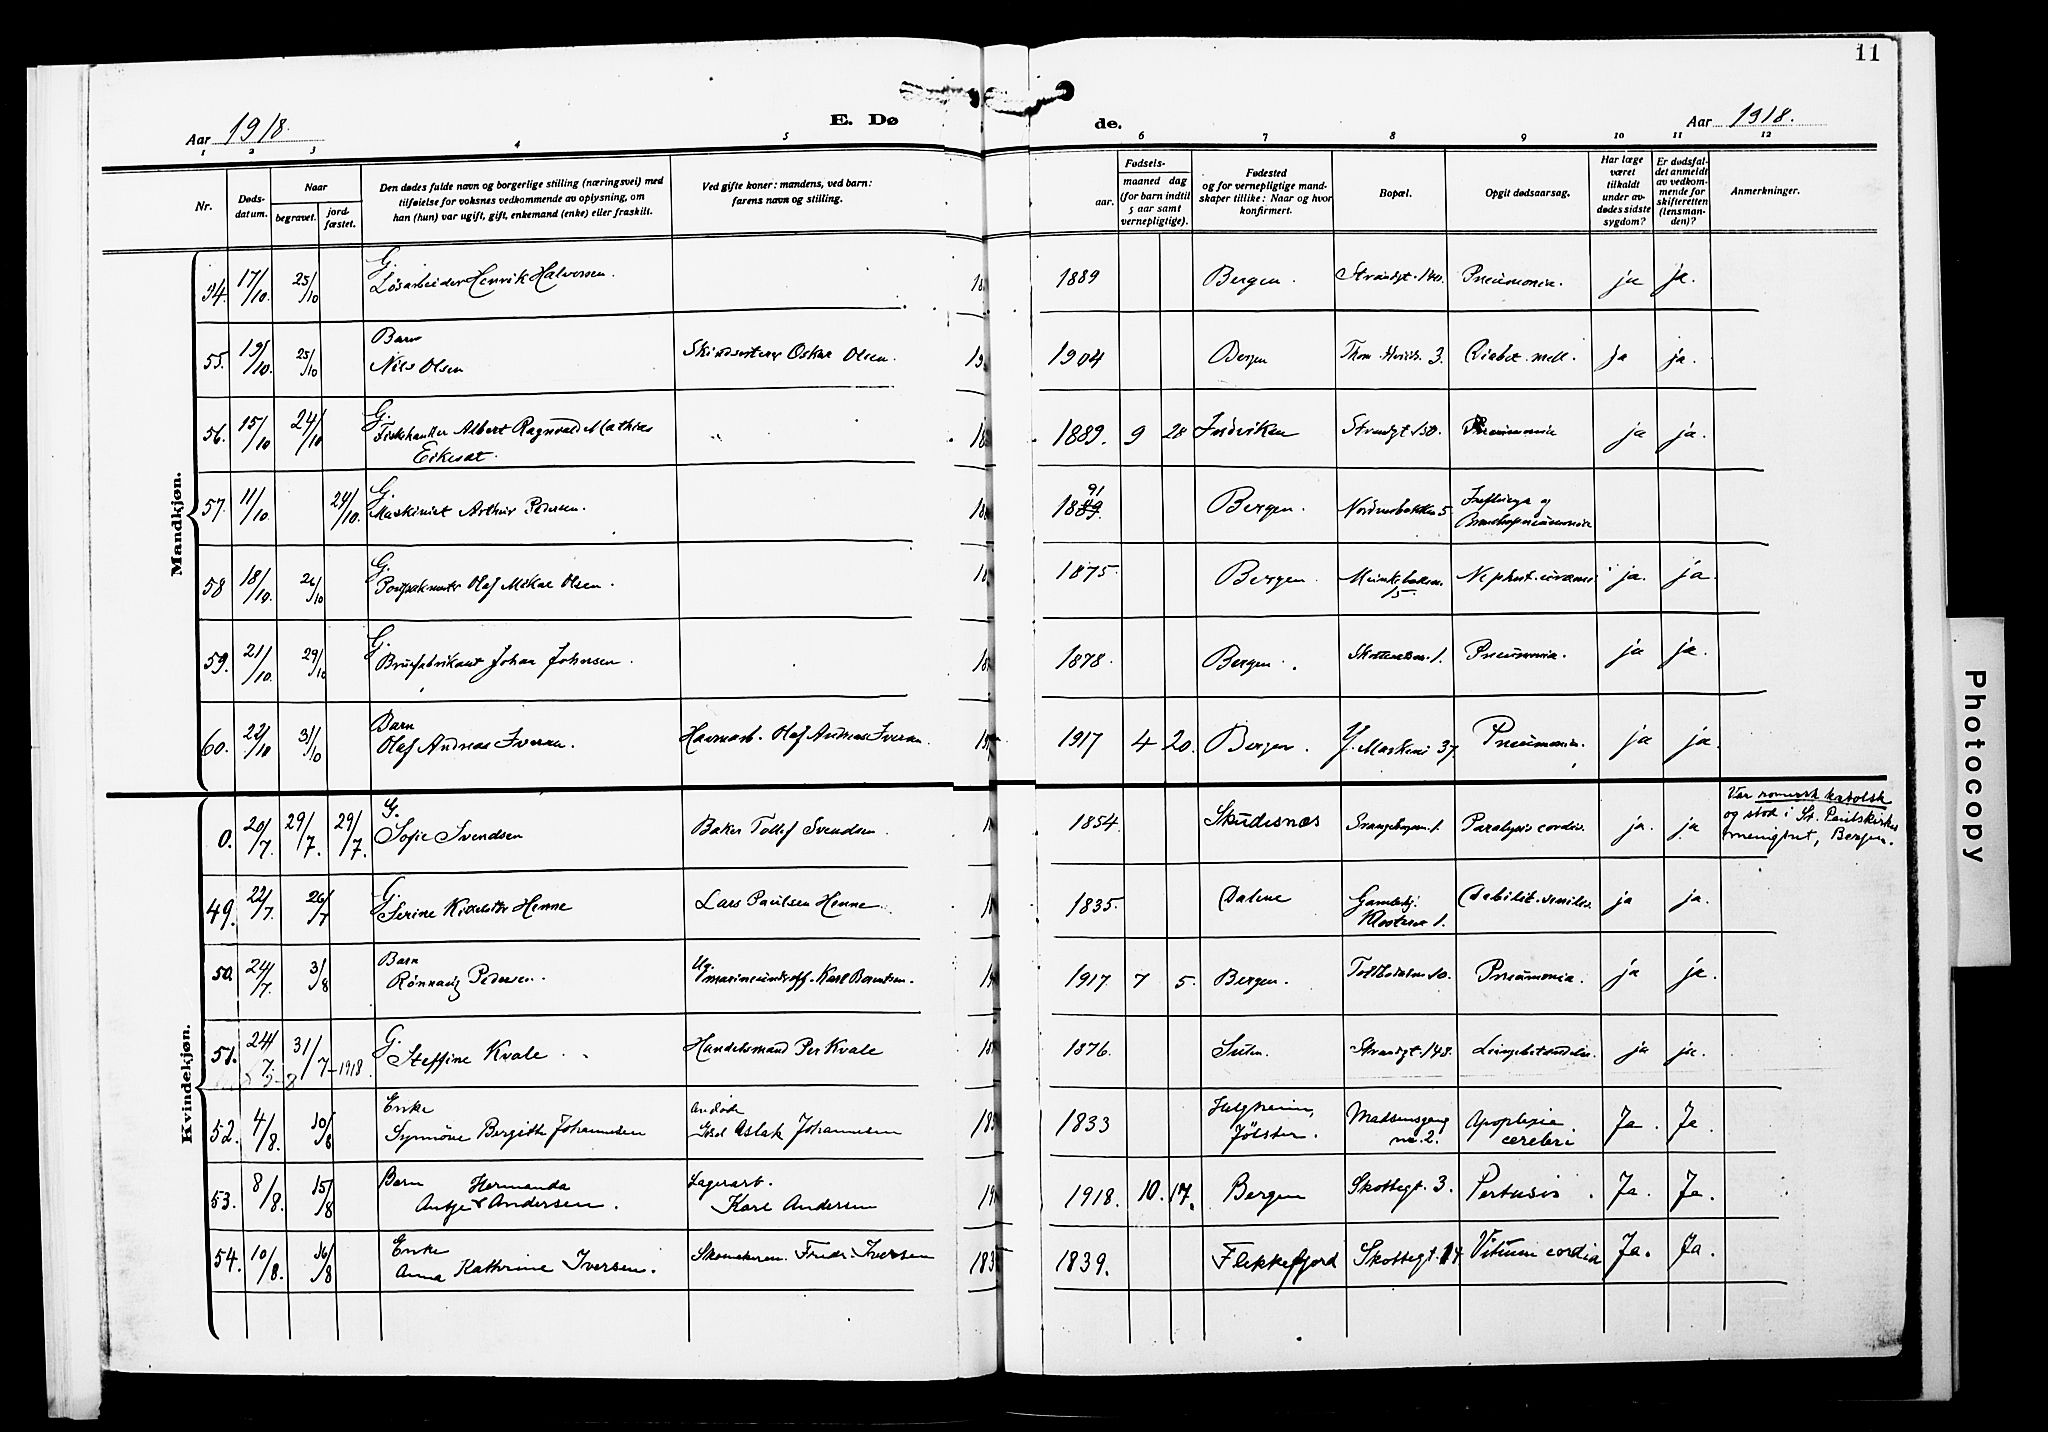 11
Aar 1918.
E. Dø
de.
Aar 1918.
1 2 3 4 5 6 7 8 9 10 11 12
Nr.
Døds-
datum.
Naar
begravet.
jord-
fæstet.
Den dødes fulde navn og borgerlige stilling (næringsvei) med
tilføielse for voksnes vedkommende av oplysning, om
han (hun) var ugift, gift, enkemand (enke) eller fraskilt.
Ved gifte koner: mandens, ved barn:
farens navn og stilling.
Fødsels-
aar.
maaned dag
(for barn indtil
5 aar samt
vernepligtige).
Fødested
og for vernepligtige mand-
skaper tillike: Naar og hvor
konfirmert.
Bopæl.
Opgit dødsaarsag.
Har læge
været
tilkaldt
under av-
dødes sidste
sygdom?
Er dødsfal-
det anmeldt
av vedkom-
mende for
skifteretten
(lensman-
den)?
Anmerkninger.
Mandkjøn.
G.
54. 17/10. 25/10 Løsarbeider Henrik Halvorsen. 1889 Bergen. Strandgt. 140. Pneumonia. ja ja.
Barn
55. 19/10. 25/10 Nils Olsen Oskar Olsen. 1904 Bergen 3. Diabet. mell. ja ja.
G.
56. 15/10 24/10 Fiskehandler Albert Ragnvald Mathias 1889. 9 28 Indviken Strandgt 150. Pneumonia ja ja.
Eikeset.
G.
57. 11/10. 24/10. Maskinist Arthur Pedersen. 1889. 91 Bergen. Nordnesbakken 5 Influenza og
Bronchopneumonia
G.
58 18/10. 26/10 Olaf Olsen. 1875. Bergen. 5. ja. ja.
G.
59. 21/10. 29/10 Johan Johnsen. 1878. Bergen. 1. Pneumonia. ja ja.
Barn
60. 22/10 31/10 Olaf Andreas Iversen. Havnearb. Olaf Andreas Iversen. 1917 4 20. Bergen. Y. Markevei 37. Pneumonia. ja ja.
Kvindekjøn.
G.
0. 20/7. 29/7. 29/7. Sofie Svendsen Baker Tollef Svendsen. 1854. Skudesnæs 1. Paralysis cordis. ja. ja
Var romersk katolsk
og stod i St. Paulskirkes
menighet, Bergen.
G.
49. 22/7. 26/7 Serine Henne Lars Paulsen Henne. 1835. Dalene Gamlehj. Debilit. senilis. ja ja.
Klosteret 1.
Barn
50. 24/7. 3/8 Rønnaug Pedersen. Karl Berntsen. 1917. 7 5. Bergen. Tollbodalm. 10. Pneumonia. ja ja.
G.
51. 24/7. 31/7-1918. Steffine Kvale. Handelsmand Per Kvale 1876. Strandgt. 148. Lungebetændelse. ja ja.
Enke
52. 4/8. 10/8 Synnøve Bergitte Johannesen Aslak Johannesen 1833 Helgheim, Madsensgang Apoplexia Ja. Ja.
Jølster. no. 2. cerebri
Barn Hermanda Lagerarb.
53. 8/8. 15/8 Antje Andersen. Karl Andersen 1918. 10. 17. Bergen Skottegt. 3. Pertusis. Ja. Ja.
Enke
54. 10/8. 16/8 Anna Kathrine Iversen. Skomakerm. Fredr. Iversen 1839. Flekkefjord Skottegt. 14. Vitium cordis Ja. Ja.
Photocopy